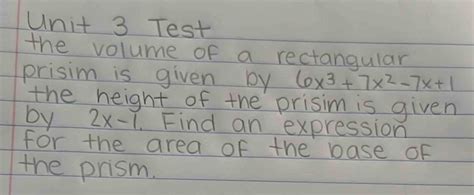 Unit 3 Test
the volume of a rectangular
prisim is given by 6x³+7x²-7x+1
the height of the prisim is given
by 2x-1. Find an expression
for the area of the base of
the prism.